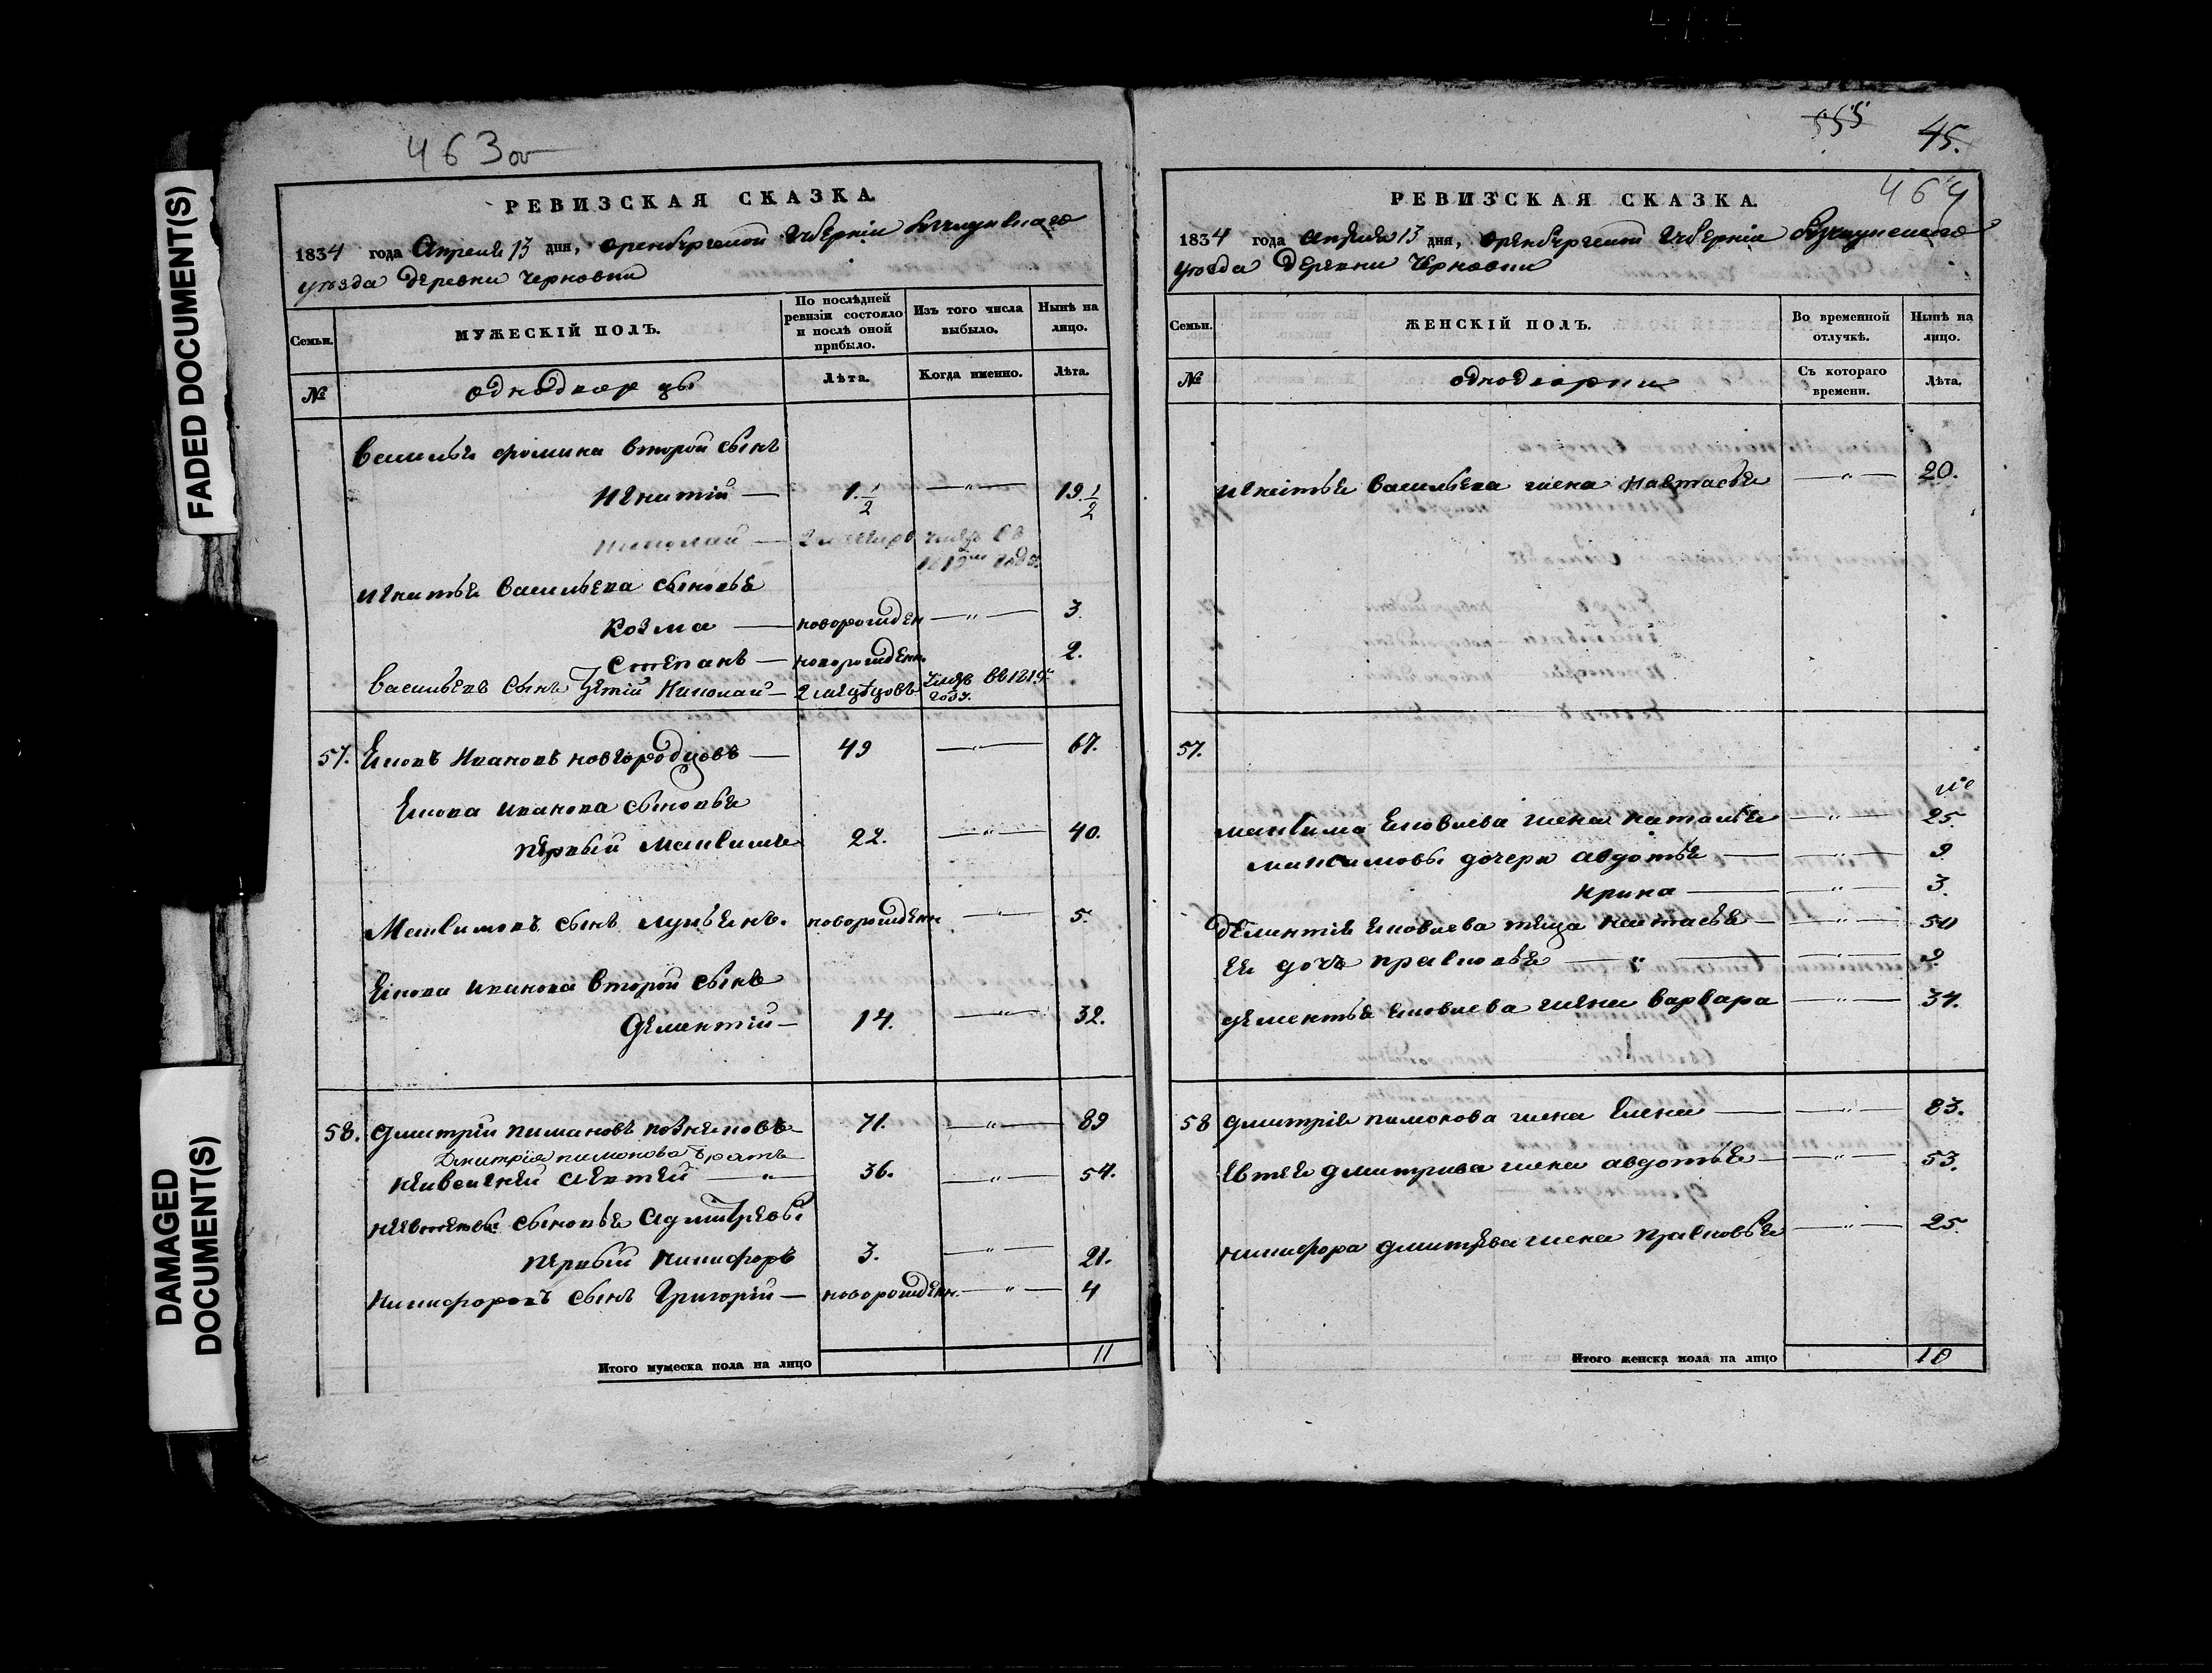 FADED DOCUMENT(S)
DAMAGED DOCUMENT(S)
463 об
РЕВИЗСКАЯ СКАЗКА.
1834 года Апреля 13 дня, оренбургской губерніи Бузулукскаго
уѣзда деревни Черновки
Семьи.
МУЖЕСКІЙ ПОЛЪ.
По послѣдней ревизіи состояло и послѣ оной прибыло.
Изъ того числа выбыло.
Нынѣ на лицо.
№
однодворцы
Лѣта.
Когда именно.
Лѣта.
Василья фомина второй сынъ
Игнатій — 1.1/2 — " — 19.1/2
Николай —
Игнатья Васильева сыновья
Козма — новорожден — " — 3.
Степанъ — новорожденн. 2.
Васильевъ сынъ третій Николай — 2 месяцовъ умре въ 1819 году.
57. Иванов новгородцовъ — 49 — " — 67.
иванова сыновья
первый Максимъ 22. — " — 40.
Максимовъ сынъ лукьянъ. новорожденн — " — 5.
иванова второй сынъ
Дементій — 14. — " — 32.
58. Дмитрій пимановъ 71. — " — 89
Дмитрія пимонова братъ
36. — " — 54.
сыновья
первый Никифоръ 3. — " — 21.
Никифоровъ сынъ Григорій — новорожденн. — " — 4
Итого мужеска пола на лицо 11
555
45.
464
РЕВИЗСКАЯ СКАЗКА.
1834 года апреля 13 дня, оренбургской губерніи Бузулукскаго
уѣзда деревни Черновки
Семьи.
ЖЕНСКІЙ ПОЛЪ.
Во временной отлучкѣ.
Нынѣ на лицо.
№
однодворки
Съ котораго времени.
Лѣта.
Игнатья Васильева жена Настасья — " — 20.
57.
максима жена наталья — " — 25.
максимовы дочери авдотья — — " — 9
Ирина — — " — 3.
теща настасья — — " — 50
ее дочь прасковья — " — — " — 9.
дементья жена варвара — " — 34.
58 дмитрія пимонова жена Елена — — " — 83.
жена авдотья — — " — 53.
никифора жена прасковья — " — 25.
Итого женска пола на лицо 10